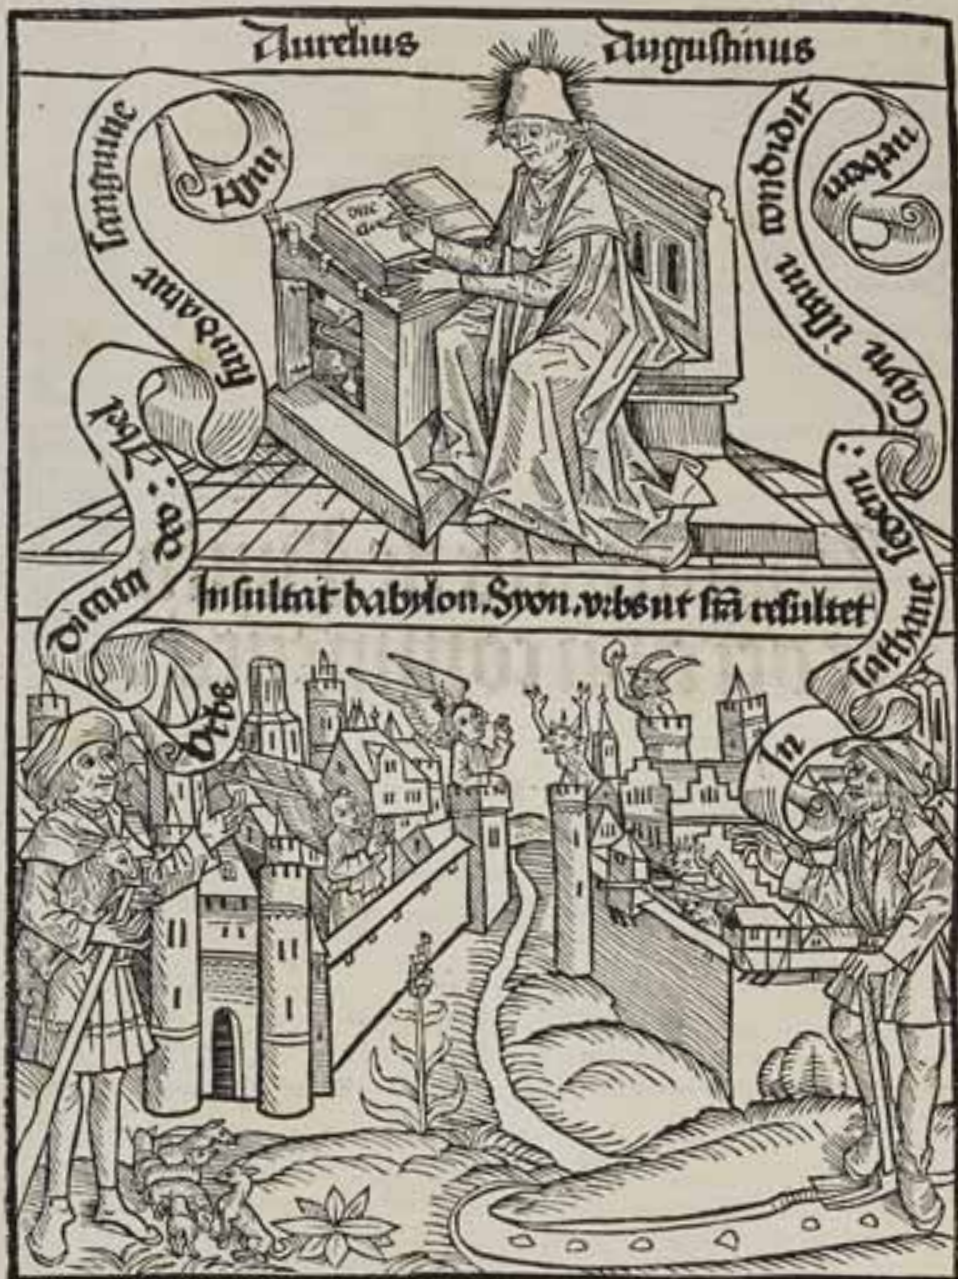 Aurelius Augustinus
Vrbs
dicata deo :· Abel
fundatur
sanguine
iusti
In
sathane sedem :·
Cayn istam condidit
urbem
Insultat babylon. Syon. vrbs ut resultet